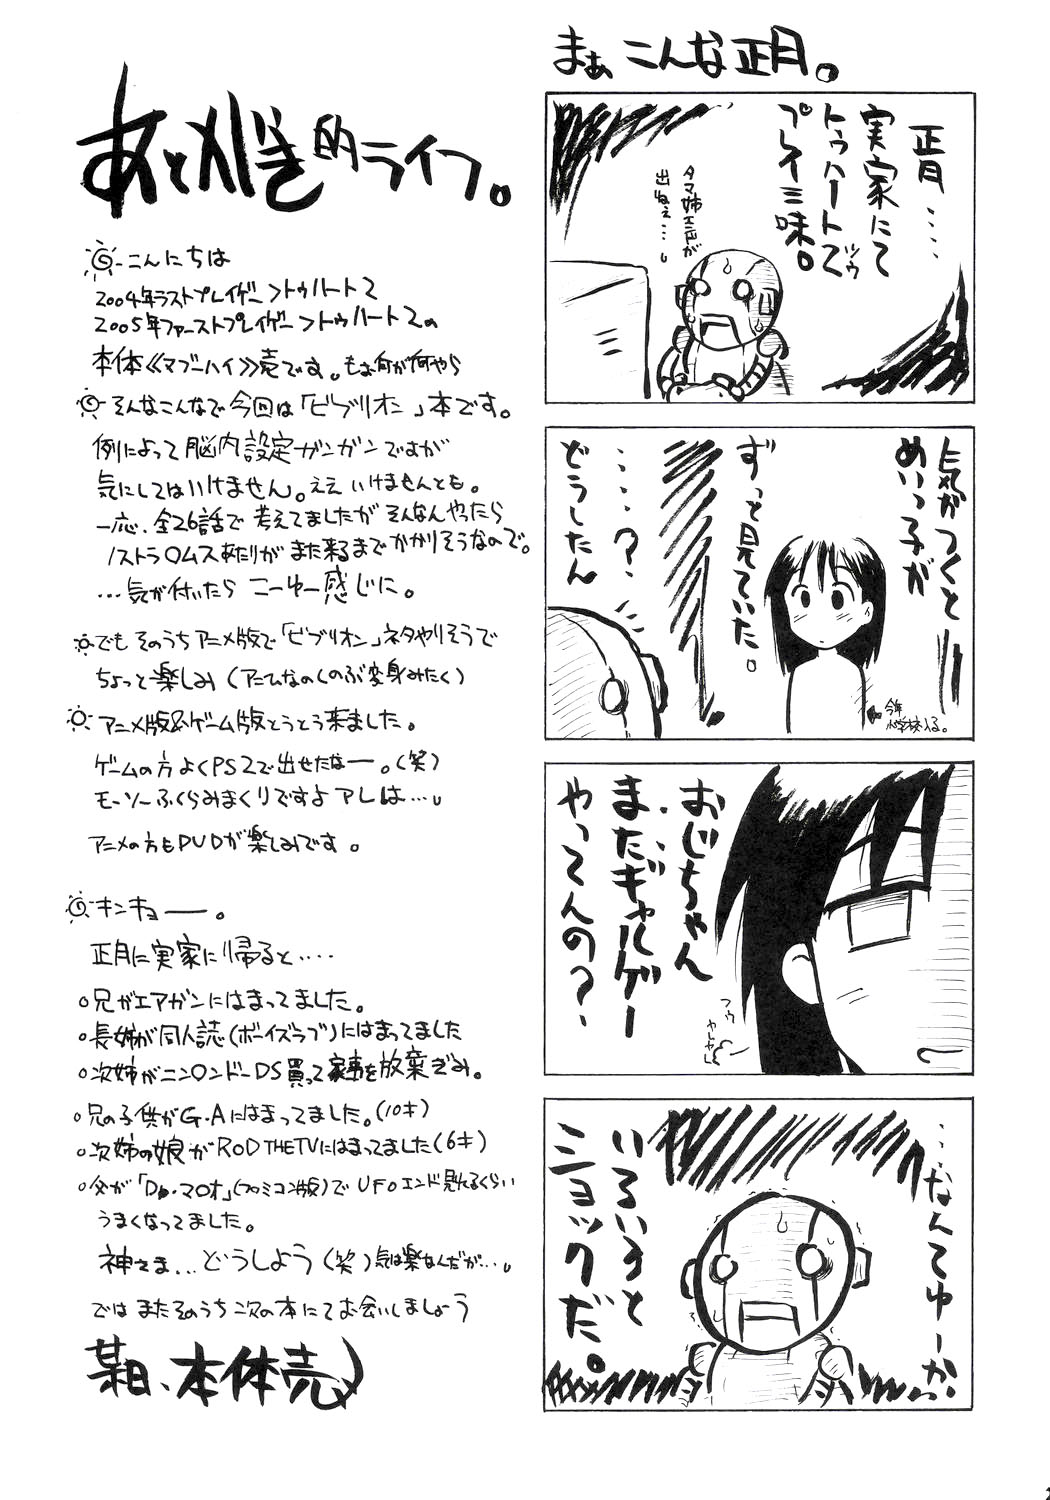 まぁ こんな正月。
正月‥‥
実家にて
トゥハート2
ツゥ
プレイ三昧。
タマ姉エンドが
出ねぇ…。
気がつくと
めいっ子が
ずっと見ていた。
‥‥?
どうしたん
今年
小学校入る。
おじちゃん
またギャルゲー
やってんの?
フゥ
ヤレヤレ
…なんてゆーか
いろいろと
ショックだ。
あとがき的ライフ。
こんにちは
2004年ラストプレイゲー>トゥハート2
2005年ファーストプレイゲー>トゥハート2の
本体《マブーハイ》売です。もぉ何が何やら
そんなこんなで今回は「ビブリオン」本です。
例によって脳内設定ガンガンですが
気にしてはいけません。ええ いけませんとも。
一応、全26話で考えてましたが そんなんやったら
ノストラ〇ムスあたりが また来るまでかかりそうなので。
…気が付いたら こーゆー感じに。
でも そのうちアニメ版で「ビブリオン」ネタやりそうで
ちょっと楽しみ(アニムなのくのぶ変身みたく)
アニメ版&ゲーム版とうとう来ました。
ゲームの方 よくPS2で出せたなー。(笑)
モーソーふくらみまくりですよ アレは…。
アニメの方もDVDが楽しみです。
キンキョー。
正月に実家に帰ると‥‥
○兄がエアガンにはまってました。
○長姉が同人誌(ボーイズラブ)にはまってました
○次姉がニン〇ンドーDS買って家事を放棄ぎみ。
○兄の子供がG・Aにはまってました。(10才)
○次姉の娘がROD THE TVにはまってました(6才)
○父が「Dr.マ〇オ」(ファミコン版)でUFOエンド見れるくらい
うまくなってました。
神さま…どうしよう(笑)気は楽なんだが…。
では またそのうち次の本にてお会いしましょう
某日、本体売